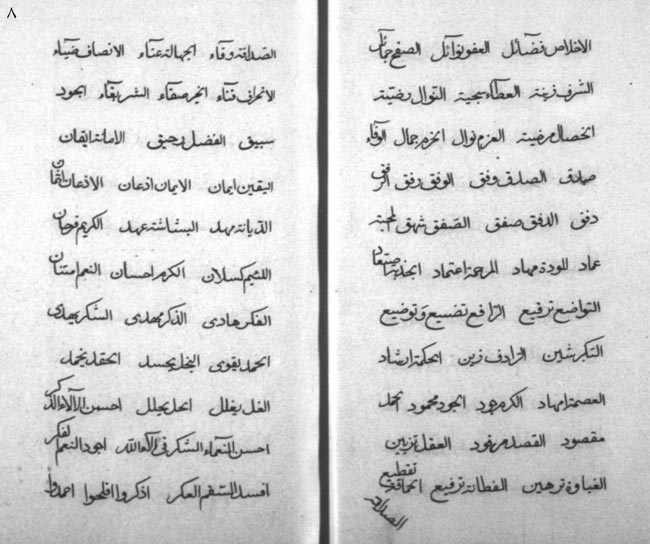 ٨
الاخلاص فضائل العفو نوائل الصفح جمائل
الشرف زينة العطاء سجية النوال رضية
الخصال مرضية العزم نوال الحزم جمال الوفاء
صادق الصدق وفق الوفق رفق الرفق
دفق الدفق صفق الصفق شهق المحبة
عماد المودة مهاد المرحمة اعتماد
التواضع ترفيع الترافع تضييع وتوضيع
التكبر شين الرادف زين الحكمة ارشاد
العصمة امهاد الكرم جود الجود محمود الحمد
مقصود القصد مرفود العقل تزيين
الغباوة ترهين الفطانة ترفيع الحماقة تقطيع
الصداقة
الصداقة وفاء الجهالة عناء الانصاف ضياء
الانحراف فناء الخير صفاء الشر بغاء الجود
سبيق الفضل رحيق الامانة ايقان
اليقين ايمان الايمان اذعان الاذعان
الديانة مهد البشاشة عهد الكريم فرحان
اللئيم كسلان الكرم احسان النعم امتنان
الفكر هادى الذكر مهدى الشكر يهدى
الحمد يقوى البخل يحسد الحقد يخمد
الغل يغلل الحل يحلل احسن الآلاء الذكر
احسن النعماء الشكر فى آلاء الله اجود النعم الفكر
افسد السقم العكر اذكروا افلحوا احمدوا